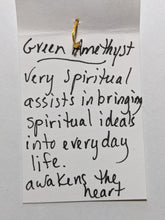 Green Amethyst
Very Spiritual
assists in bringing
spiritual ideals
into everyday
life.
awakens the
heart